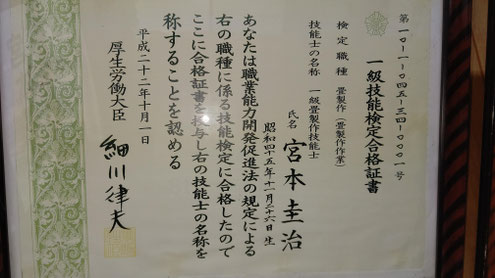 第一〇-一-〇四五-三四-〇〇〇一号
一級技能検定合格証書
検定職種 畳製作（畳製作作業）
技能士の名称 一級畳製作技能士
氏名 宮本圭治
昭和四十五年十一月二十六日生
あなたは職業能力開発促進法の規定による
右の職種に係る技能検定に合格したので
ここに合格証書を授与し右の技能士の名称を
称することを認める
平成二十二年十月一日
厚生労働大臣 細川律夫